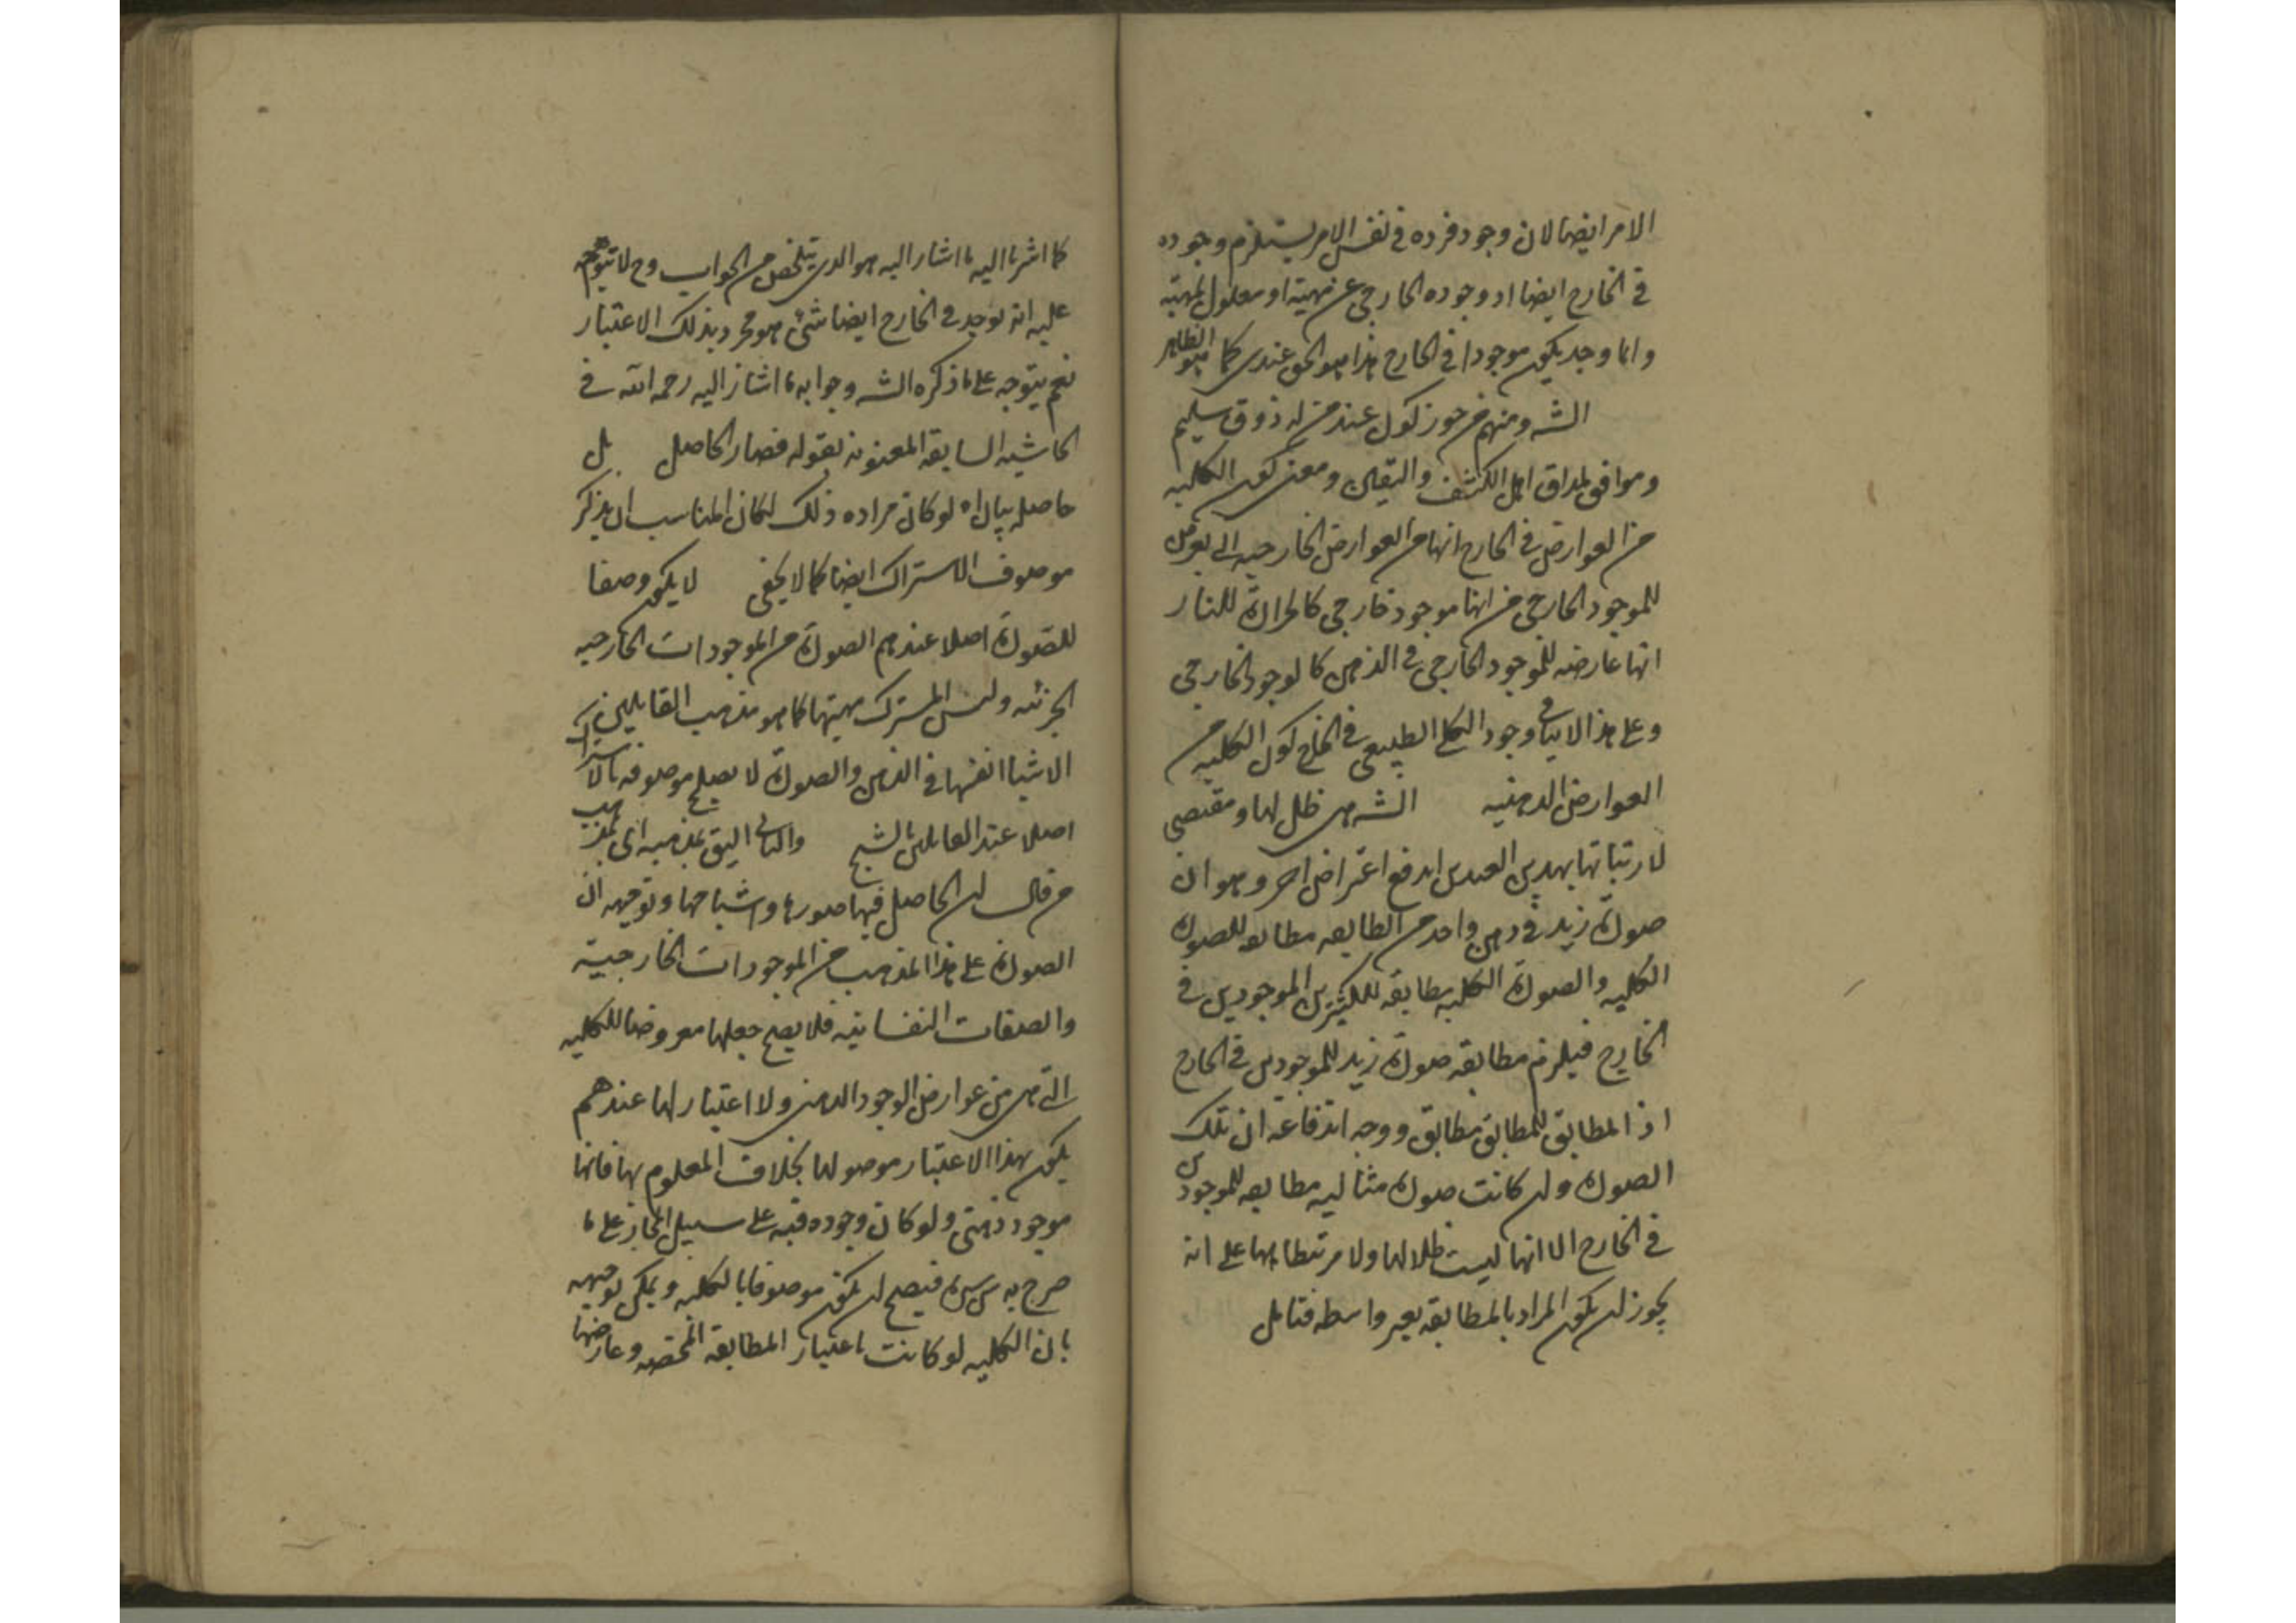 الامر ايضا لان وجود فرده في نفس الامر يستلزم وجوده
في الخارج ايضا اذ وجوده الخارجي عن مهيته او معلول لمهيته
وانما وجد يكون موجودا في الخارج هذا هو الحق عندي كما هو الظاهر
الشه ومنهم من جوز كون عند من له ذوق سليم
وموافق لمذاق اهل الكشف واليقين ومعنى كون الكليه
من العوارض في الخارج انها من العوارض الخارجيه الى يعرض
للموجود الخارجي من انها موجود خارجي كالحرارة للنار
انها عارضه للموجود الخارجي في الذهن كالوجود الخارجي
وعلى هذا لا ينافي وجود الكلي الطبيعي في الخارج كون الكليه من
العوارض الذهنيه الشه هي ظل لها ومقتضى
لارتباتها بهذين القيدين اندفع اعتراض اخر وهو ان
صورة زيد في ذهن واحد من الطايفه مطابقه للصورة
الكليه والصورة الكليه مطابقه للكثيرين الموجودين في
الخارج فيلزم مطابقه صورة زيد للموجودين في الخارج
اذ المطابق للمطابق مطابق ووجه اندفاعه ان تلك
الصورة وان كانت صورة مثاليه مطابقه للموجودين
في الخارج الا انها ليست ظلالها ولا مرتبطا بها على انه
يجوز ان يكون المراد بالمطابقه بغير واسطه فتامل
كما اشرنا اليه ما اشار اليه هو الذي يتلخص من الجواب وح لا يتوجه
عليه انه يوجد في الخارج ايضا شئ هو مجرد بذلك الاعتبار
نعم يتوجه على ما ذكره الشه وجوابه ما اشار اليه رحمه الله في
الحاشيه السابقه المعنونه بقوله فصار الحاصل بل
حاصله بيان اه لو كان مراده ذلك لكان المناسب ان يذكر
موصوف الاشتراك ايضا كما لا يخفى لا يكون وصفا
للصورة اصلا عندهم الصورة من الموجودات الخارجيه
الجزئيه وليس المشترك مهيتها كما هو مذهب القايلين
الاشيا انفسها في الذهن والصورة لا يصلح موصوفه بالاشتراك
اصلا عند القايلين بالشبح والثاني اليق بمذهبه اى بمذهب
من قال ان الحاصل فيها صورها واشباحها وتوجيهه ان
الصورة على هذا المذهب من الموجودات الخارجية
والصفات النفسانيه فلا يصح جعلها معروضا للكليه
التي هي من عوارض الوجود الذهني ولا اعتبار لها عندهم
يكون بهذا الاعتبار موصولها بخلاف المعلوم بها فانها
موجود ذهني ولو كان وجوده فيه على سبيل المجاز على ما
صرح به س سره فيصح ان يكون موصوفا بالكليه ويمكن توجيهه
بان الكليه لو كانت باعتبار المطابقه المختصه وعارضها